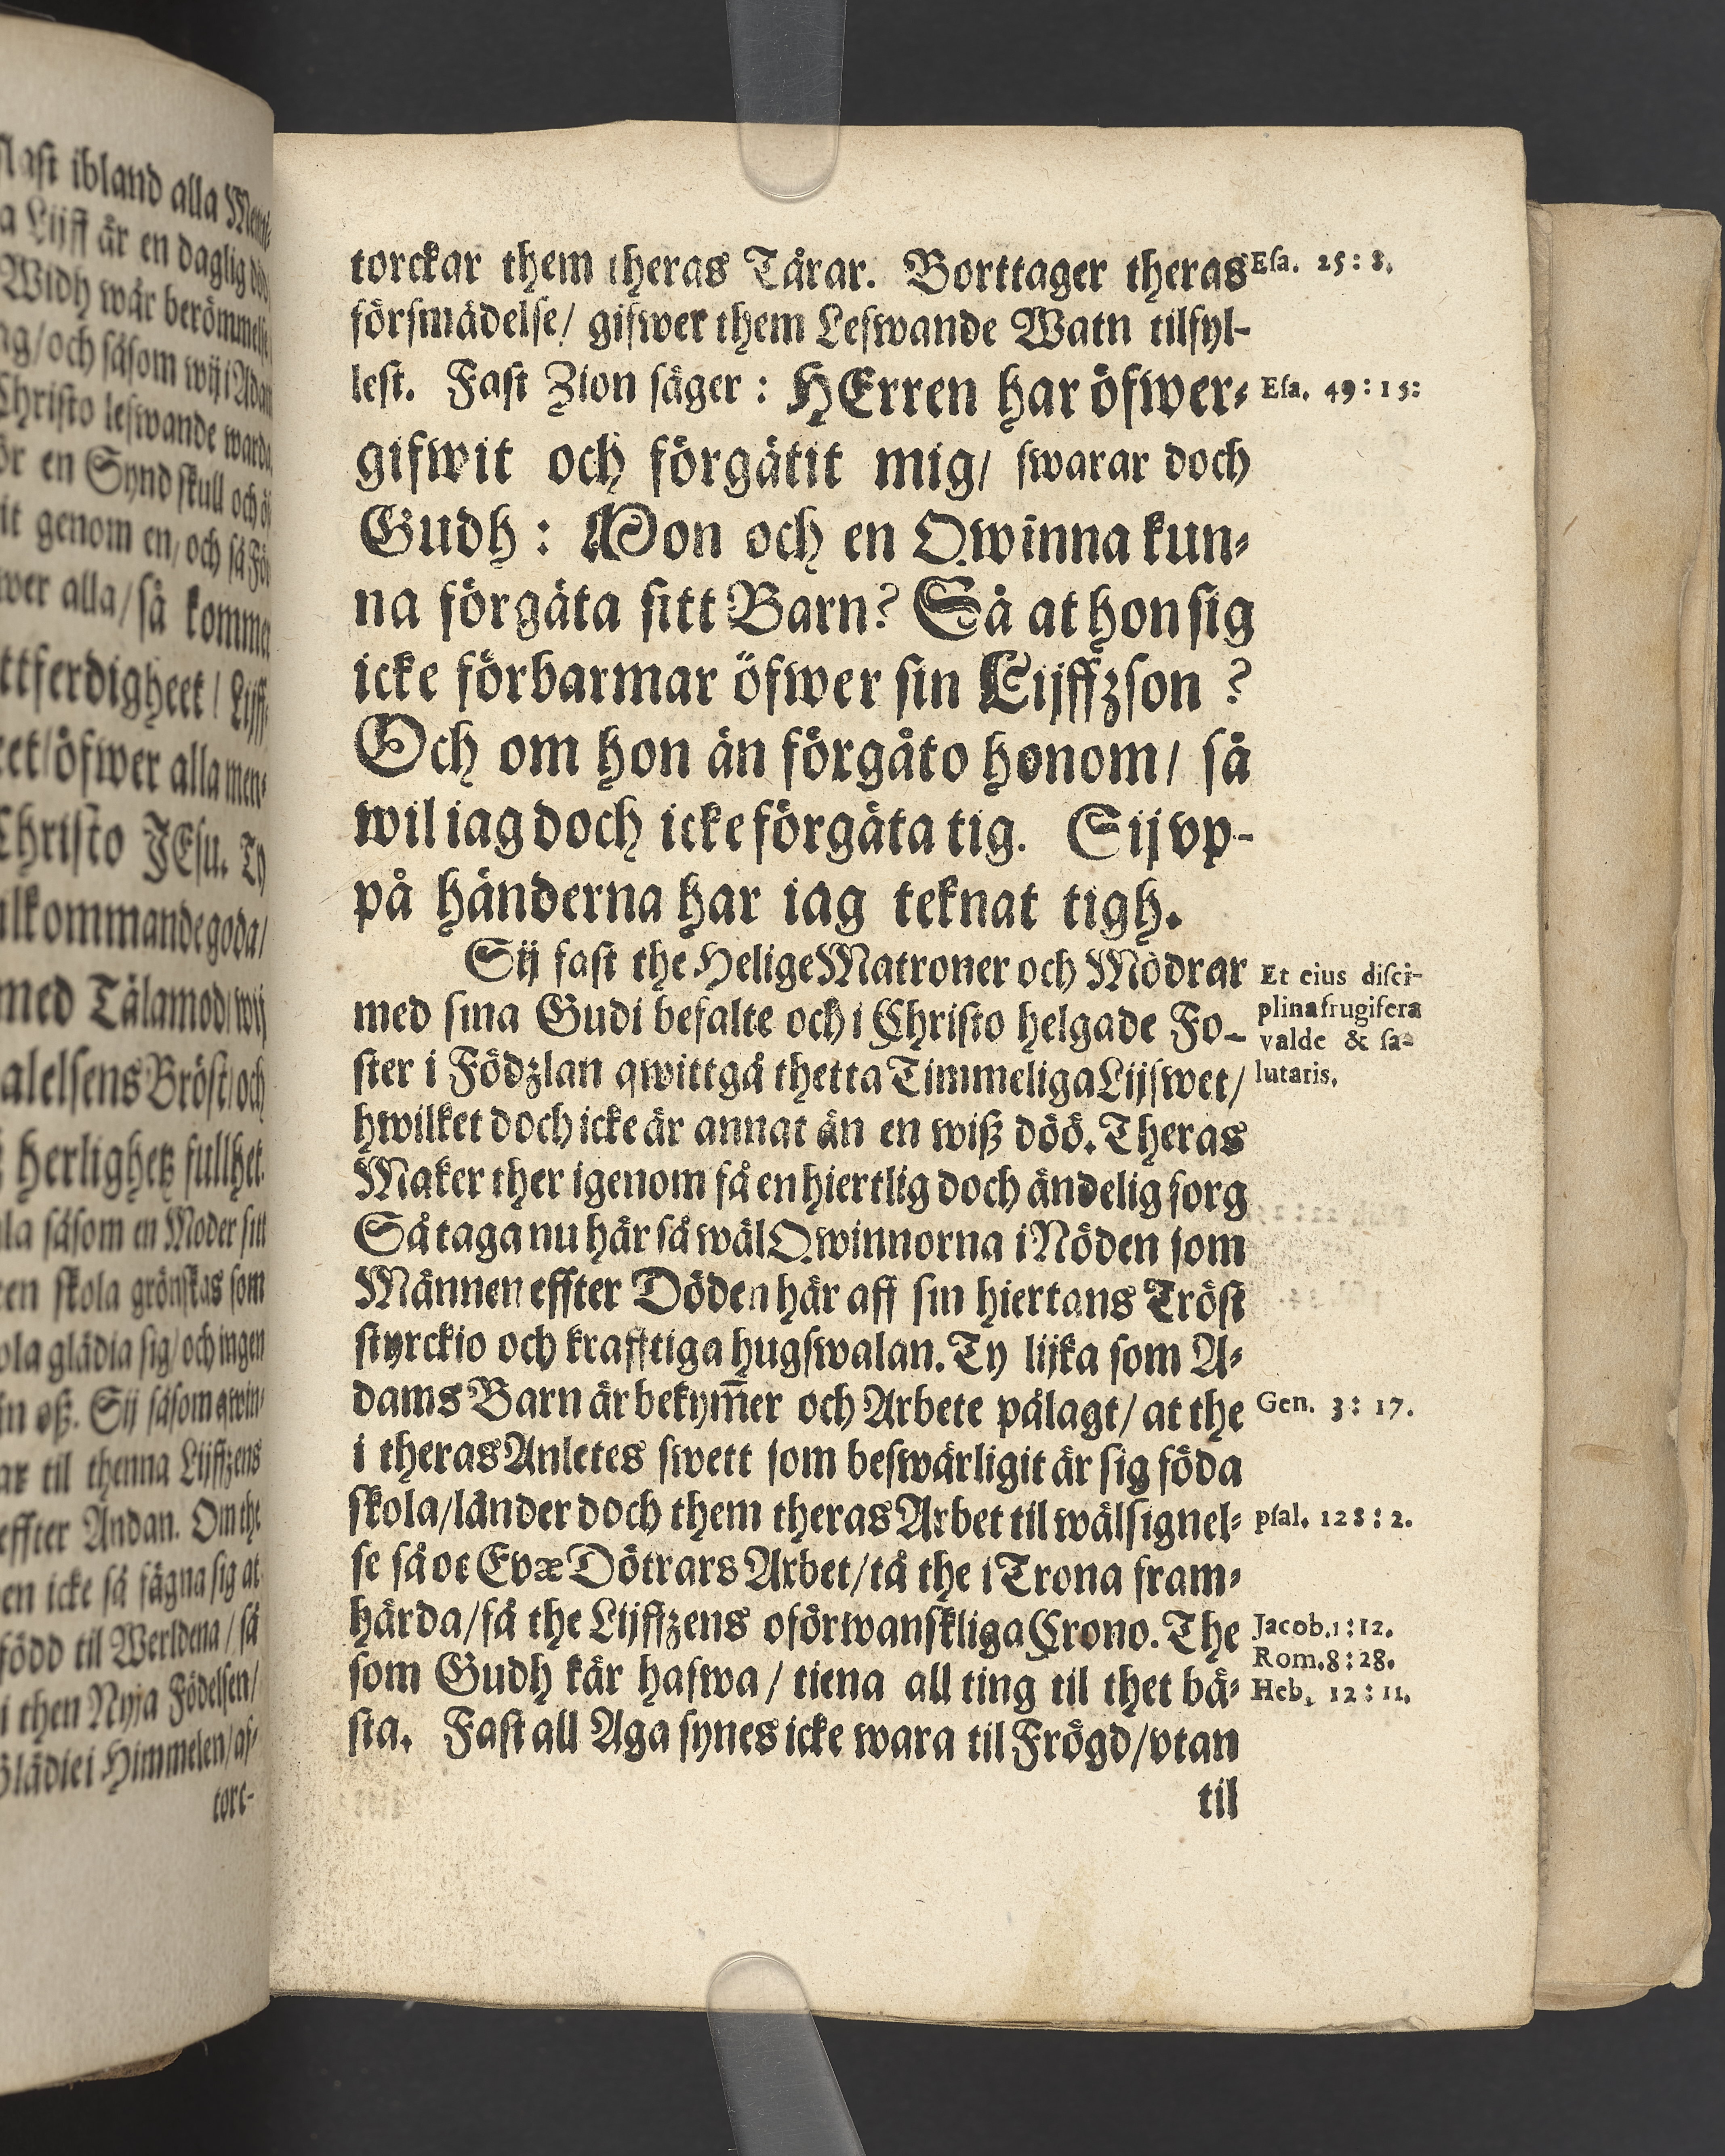 ſlaſt ibland alla Men-
a Lijff är en daglig död
Widh wår berömmelſe
ag/och ſåſom wij i Adam
Chriſto lefwande warda
ör en Synd ſkull och ö
it genom en/ och ſå För
wer alla/ ſå kommer
ttferdigheet / Lijff
eet/öfwer alla men⸗
Chriſto JEſu. Ty
ilkommande goda/
med Tålamod/wij
alelſens Bröſt/och
herlighetz fullhet.
la ſåſom en Moder ſitt
en ſkola grönſkas ſom
ola glädia ſig/ och ingen
in oß. Sij ſåſom qwin⸗
ar til thenna Lijffzens
effter Andan. Om the
en icke ſå fägna ſig at
född til Werldena / ſå
i then Nyja Födelſen/
Glädie i Himmelen/af⸗
torc-
torckar them theras Tårar. Borttager theras
förſmädelſe/ gifwer them Lefwande Watn tilfyl-
leſt. Faſt Zion ſäger : HErren har öfwer⸗
gifwit och förgätit mig/ ſwarar doch
Gudh : Mon och en Qwinna kun⸗
na förgäta ſitt Barn? Så at hon ſig
icke förbarmar öfwer ſin Lijffzſon ?
Och om hon än förgåto honom/ ſå
wil iag doch icke förgäta tig. Sij vp-
på händerna har iag teknat tigh.
Sij faſt the Helige Matroner och Mödrar
med ſina Gudi befalte och i Chriſto helgade Fo-
ſter i Födzlan qwittgå thetta Timmeliga Lijfwet/
hwilket doch icke är annat än en wiß döö. Theras
Maker ther igenom få en hiertlig doch ändelig ſorg
Så taga nu här ſå wäl Qwinnorna i Nöden ſom
Männen effter Döden här aff ſin hiertans Tröſt
ſtyrckio och krafftiga hugſwalan. Ty lijka ſom A⸗
dams Barn är bekym̄er och Arbete pålagt/ at the
i theras Anletes ſwett ſom beſwärligit är ſig föda
ſkola/länder doch them theras Arbet til wälſignel⸗
ſe ſå oc Evæ Dötrars Arbet/tå the i Trona fram⸗
härda/få the Lijffzens oförwanſkliga Crono. The
ſom Gudh kär hafwa / tiena all ting til thet bä⸗
ſta. Faſt all Aga ſynes icke wara til Frögd/vtan
til
Eſa. 25 : 8.
Eſa. 49 : 15:
Et eius diſci-
plina frugifera
valde & ſa-
lutaris.
Gen. 3 : 17.
pſal. 128 : 2.
Jacob.1 : 12.
Rom.8 : 28.
Heb. 12 : 11.